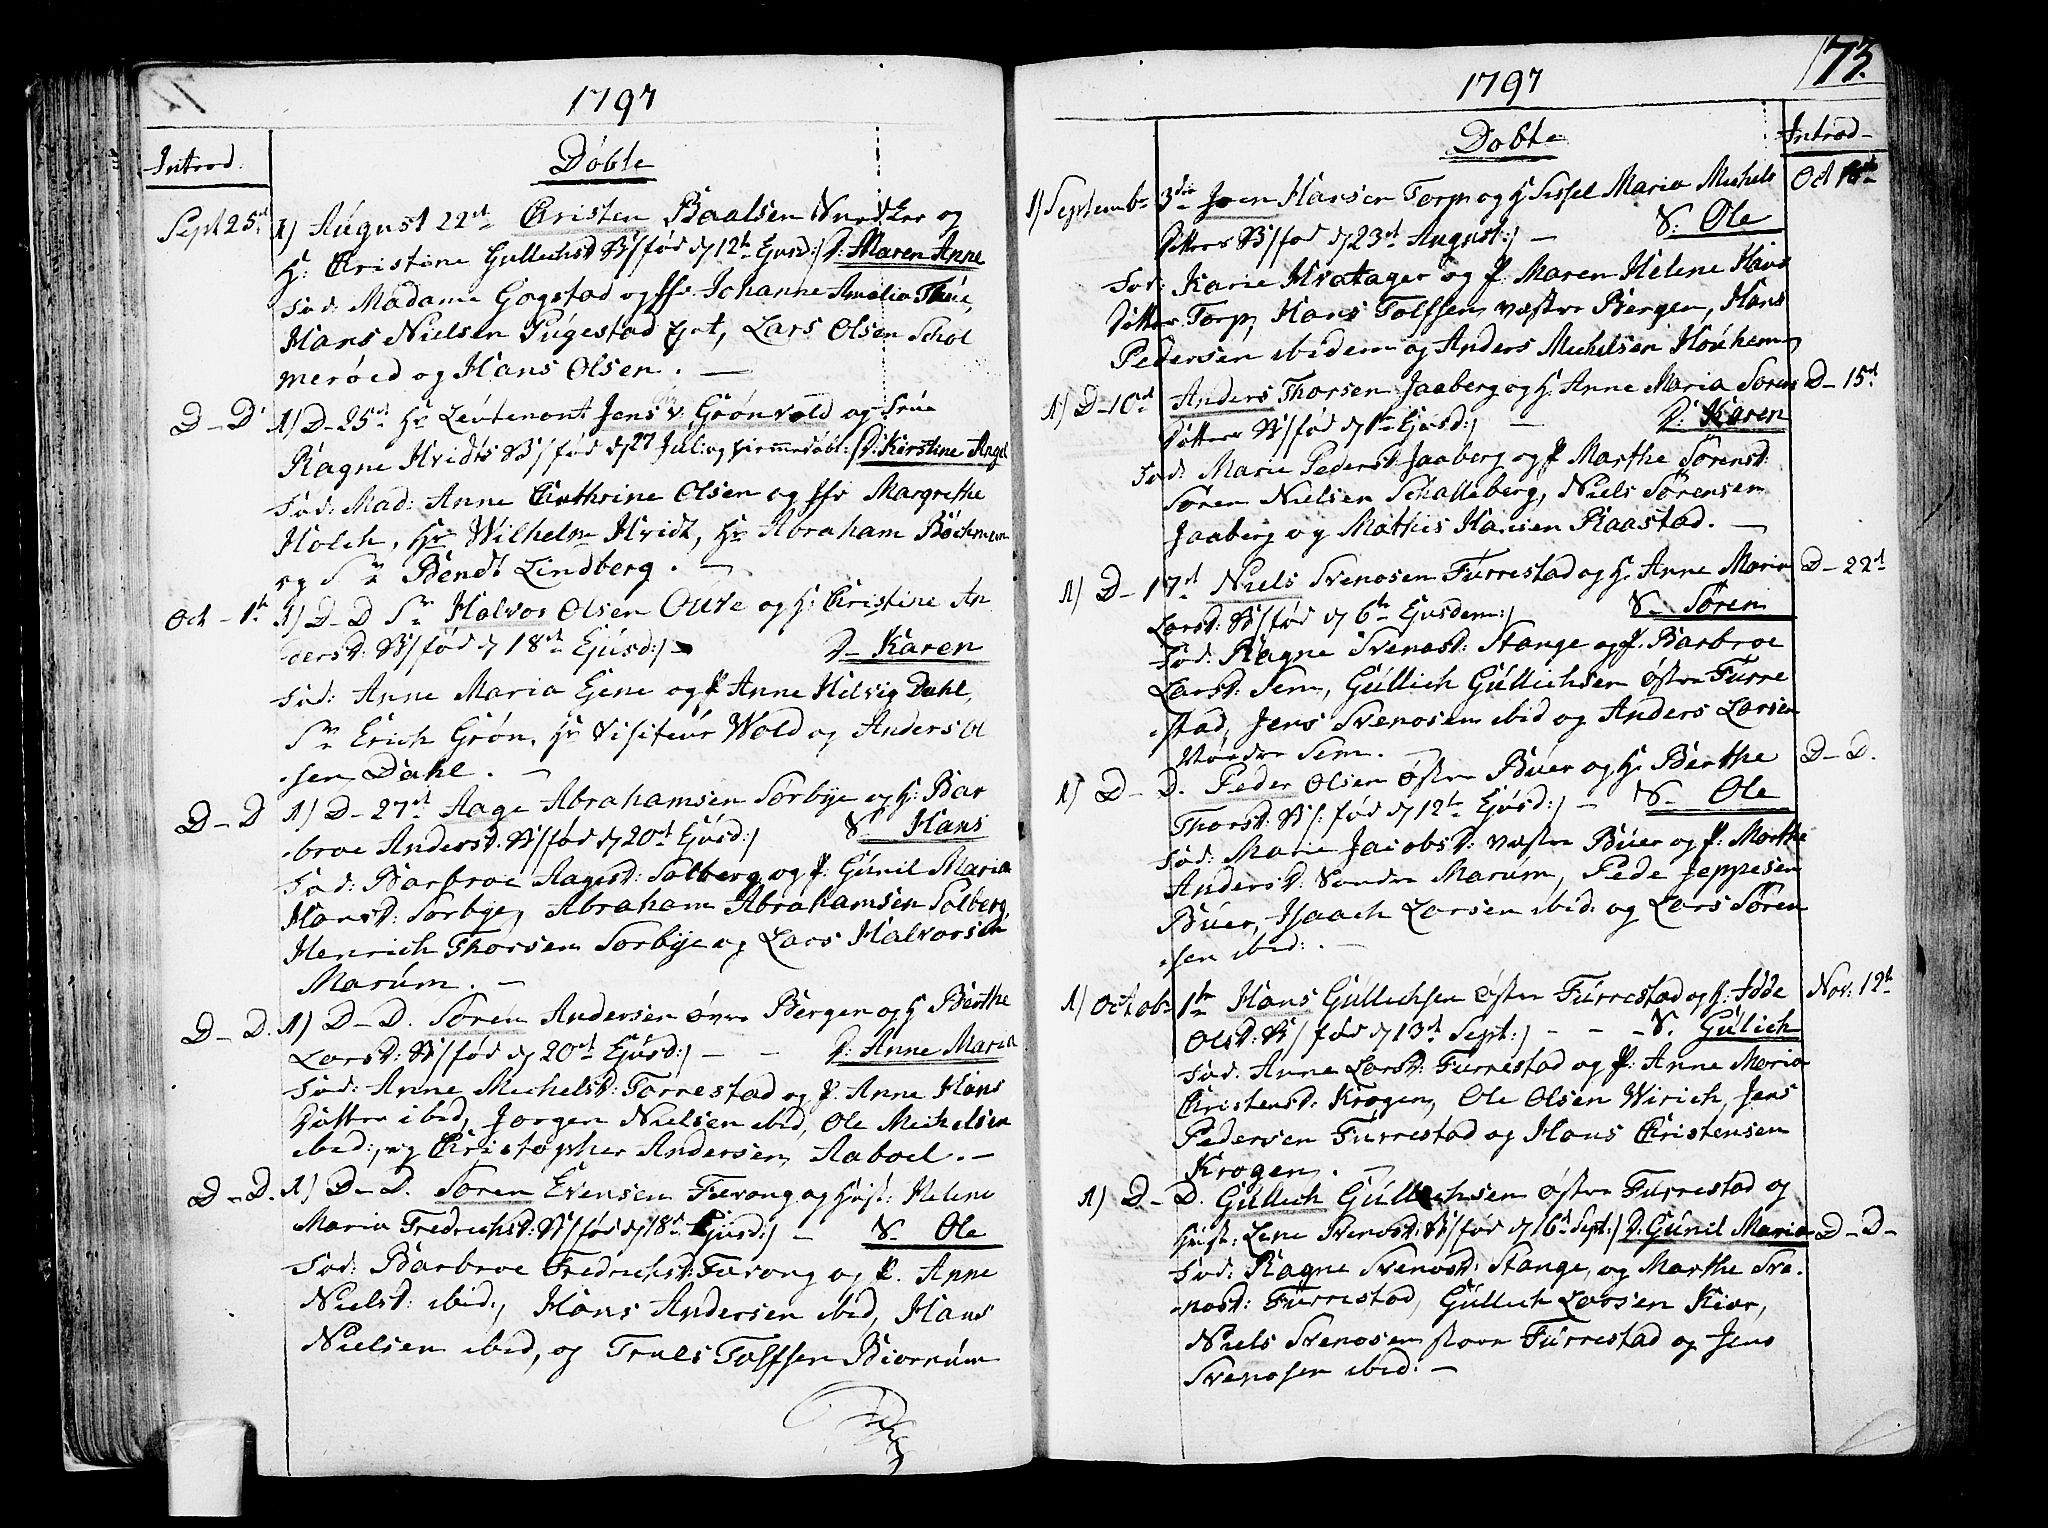 1797
Introd.
Döbte
Sept 25de 1) August 22de Christen Baalsen og
H: Christine Gullichsd B/ fød d 12te Ejusd:/ D: Maren Anne
Fad: Madame Gogstad og Jfr Johanne Amalia
Hans Nielsen Pugestad Lars Olsen Schol
meröed og Hans Olsen. —
D-D 1) D-25de Hr Leutenant Jens v. Grönvold og Frue
Ragne Hvidts B/ fød d 27 Jul: og hiemmedöbt:/ D: Kirstine Angel
Fad: Mad: Anne Cathrine Olsen og Jfr Margrethe
Holch, Hr Wilhelm Hvidt, Hr Abraham Böckmann
og Sr Bendt Lindberg. —
Oct - 1te 1) D-D Sr Halvor Olsen Ouve og H: Christine An
dersd: B/ fød d 18de Ejusd:/ D- Karen
Fad: Anne Maria Eene og P Anne Hilvig Dahl,
Sr Erich Grön, Hr Visiteur Wold og Anders Ol
sen Dahl. —
D-D 1) D-27de Aage Abrahamsen Sörbye og H: Bar
broe Andersd: B/ fød d 20de Ejusd:/ S. Hans
Fad: Barbroe Aagesd: Solberg og P: Gunil Maria
Hansd: Sorbye, Abraham Abrahamsen Solberg,
Henrich Thorsen Sorbye og Lars Halvorsen
Marúm. —
D-D. 1) D-D. Sören Andersen övre Bergen og H Berthe
Larsd: B/ fød d 20de Ejusd:/ — — D: Anne Maria
Fad: Anne Michelsd: Forrestad og P. Anne Hans
Dötter ibid, Jorgen Nielsen ibid, Ole Michelsen
ibid:, og Christopher Andersen Aaboel. —
D-D. 1) D-D. Sören Evensen Furong og Helene
Maria Fredrichsd: B/ fød d 18de Ejusd:/ — S. Ole
Fad: Barbroe Fredrichsd: Furong og P. Anne
Nielsd: ibid:, Hans Andersen ibid, Hans
Nielsen ibid, og Truls Tolfsen Biornúm
73.
1797
Döbte
Introd-
1) Septemb- 3die Joen Hansen Torp og H Sissel Maria Michels Oct
Dötters B/ fød d 23de August:/ — S: Ole
Fad: Karie Hvatager og P. Maren Helene Hans
Dötter Torp, Hans Tolfsen vestre Bergen, Hans
Pedersen ibidem og Anders Michelsen
1) D-10de Anders Thorsen Jaaberg og H: Anne Maria Soren D-15de
Dötters B/ fød d 1te Ejusd:/ — D: Karen
Fad: Marie Pedersd: Jaaberg og P Marthe Sörensd:
Sören Nielsen Schalleberg, Niels Sörensen
Jaaberg og Mathis Hansen Raastad. —
1) D-17de Niels Svenosen Furrestad og H. Anne Maria D-22de
Larsd: B/ fød d 6te Ejusdem:/ S- Sören
Fad: Ragne Svenosd: Stange og P. Barbroe
Larsd: Sem, Gúllich Gúllichsen östre Furre
stad, Jens Svenosen ibid og Anders Larsen
Nordre Sem. —
1) D-D. Peder Olsen östre Búer og H. Berthe D-D.
Thorsd: B/ fød d 12te Ejusd:/ — S- Ole
Fad: Marie Jacobsd: vestre Búer og P: Marthe
Andersd: Söndre Marúm, Pede Jeppesen
Búer, Isaach Larsen ibid: og Lars Sören
sen ibid:. —
1) Octob- 1te Hans Gúllichsen östre Fúrrestad og H: Idde Nov: 12te
Olsd: B/ fød d 13de Sept:/ — — — S. Gúlich
Fad: Anne Larsd: Furrestad og P: Anne Maria
Christensd: Krogen, Ole Olsen Wirich, Jens
Pedersen Fúrrestad og Hans Christensen
Krogen. —
1) D-D. Gúllich Gúllichsen östre Furrestad og
Lene Svenosd: B/ fød d 16de Sept:/ D: Gúnil Maria D-D-
Fad: Ragne Svenosd: Stange, og Marthe Sve-
nosd: Fúrrestad, Gúllich Larsen Kiær,
Niels Svenosen store Fúrrestad og Jens
Svenosen ibid: —